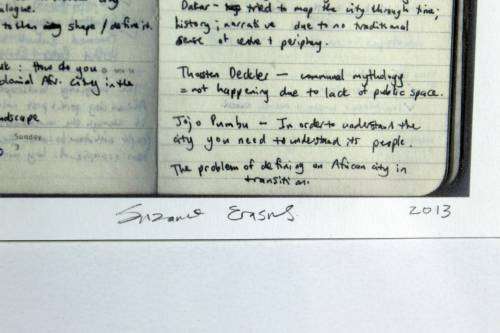 alogue.
to then shape / define it.
: How do you
Afr. city in the
landscape
Sunday
3
Dakar - tried to map the city through time;
history; narrative due to no traditional
sense of centre + periphery.
Thorsten Deckler - communal mythology
= not happening due to lack of public space.
Jojo Pumbu - In order to understand the
city you need to understand its people.
The problem of defining an African city in
transition.
Suzanne Erasmus 2013